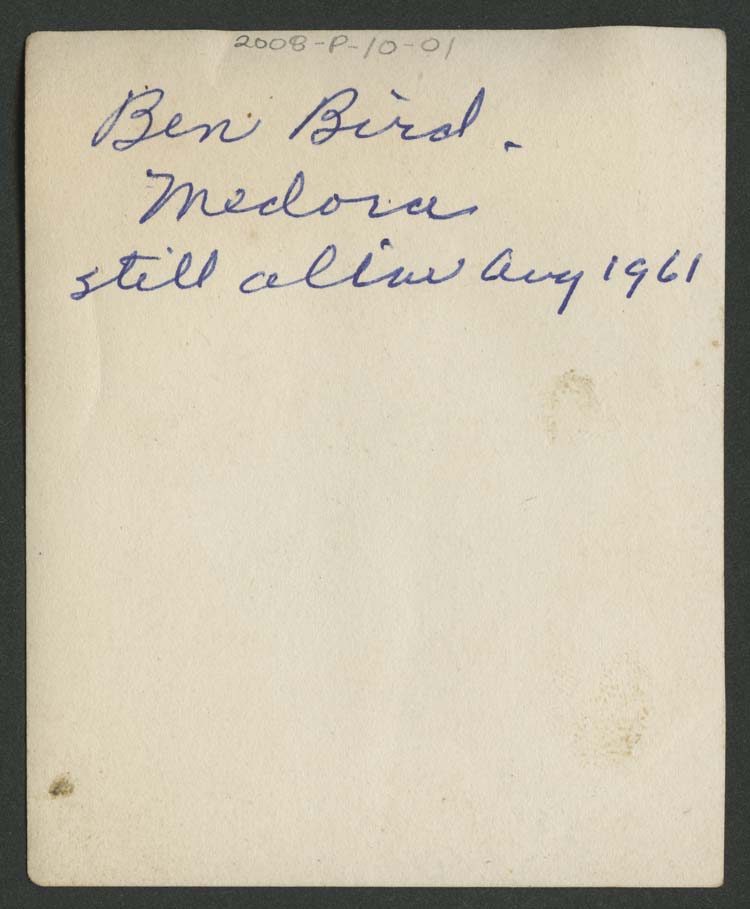 2008-P-10-01
Ben Bird.
Medora
still alive Aug 1961